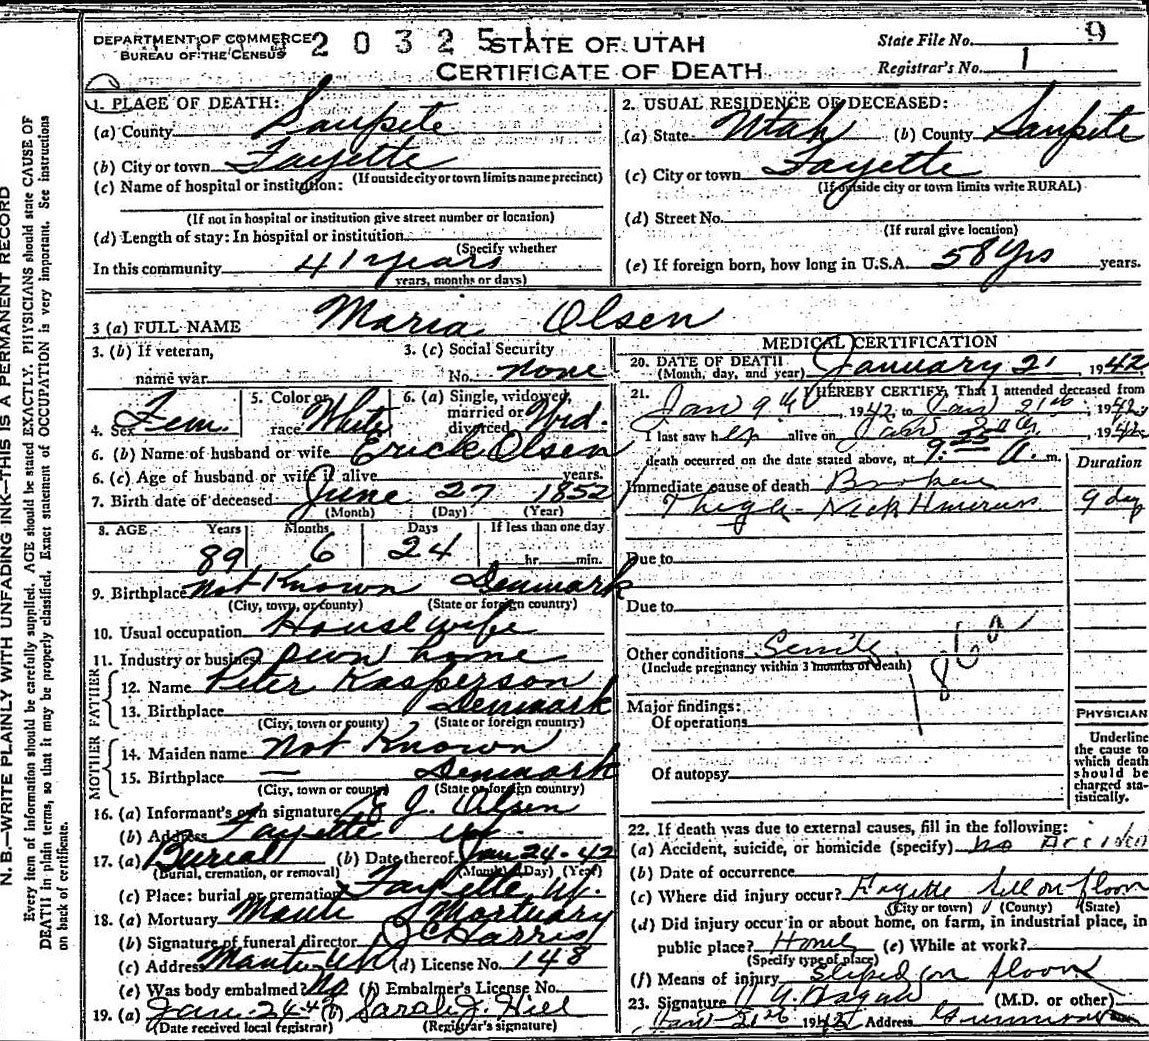 DEPARTMENT OF COMMERCE
BUREAU OF THE CENSUS
2 0 3 2 5 1
STATE OF UTAH
CERTIFICATE OF DEATH
State File No. 9
Registrar's No. 1
N. B.—WRITE PLAINLY WITH UNFADING INK—THIS IS A PERMANENT RECORD
Every item of information should be carefully supplied. AGE should be stated EXACTLY. PHYSICIANS should state CAUSE OF
DEATH in plain terms, so that it may be properly classified. Exact statement of OCCUPATION is very important. See instructions
on back of certificate.
1. PLACE OF DEATH:
(a) County Sanpete
(b) City or town Fayette
(If outside city or town limits name precinct)
(c) Name of hospital or institution:
(If not in hospital or institution give street number or location)
(d) Length of stay: In hospital or institution
(Specify whether
In this community 41 years
years, months or days)
2. USUAL RESIDENCE OF DECEASED:
(a) State Utah (b) County Sanpete
(c) City or town Fayette
(If outside city or town limits write RURAL)
(d) Street No.
(If rural give location)
(e) If foreign born, how long in U.S.A. 58 Yrs years.
3 (a) FULL NAME Maria Olsen
3. (b) If veteran,
name war
3. (c) Social Security
No. none
4. Sex Fem.
5. Color or
race White
6. (a) Single, widowed,
married or
divorced Wid.
6. (b) Name of husband or wife Erick Olsen
6. (c) Age of husband or wife if alive years.
7. Birth date of deceased June 27 1852
(Month) (Day) (Year)
8. AGE Years Months Days If less than one day
89 6 24 hr. min.
9. Birthplace Not Known Denmark
(City, town, or county) (State or foreign country)
10. Usual occupation House wife
11. Industry or business own home
FATHER
12. Name Peter Kasperson
13. Birthplace Denmark
(City, town or county) (State or foreign country)
MOTHER
14. Maiden name Not Known
15. Birthplace — Denmark
(City, town or county) (State or foreign country)
16. (a) Informant's own signature J. Olsen
(b) Address Fayette Ut.
17. (a) Burial (b) Date thereof Jan 24-42
(Burial, cremation, or removal) (Month) (Day) (Year)
(c) Place: burial or cremation Fayette Ut.
18. (a) Mortuary Manti Mortuary
(b) Signature of funeral director J C Harris
(c) Address Manti Ut (d) License No. 148
(e) Was body embalmed? No (f) Embalmer's License No.
19. (a) Jan-24-42 (b) Sarah J. Hill
(Date received local registrar) (Registrar's signature)
MEDICAL CERTIFICATION
20. DATE OF DEATH
(Month, day, and year) January 21, 1942
21. I HEREBY CERTIFY, That I attended deceased from
Jan 9th, 1942 to Jan 21th, 1942
I last saw her alive on Jan 1942
death occurred on the date stated above, at 9:25 A. m.
Duration
Immediate cause of death Broken
Thigh - Neck Humerus 9 day
Due to
Due to
Other conditions Senile
(Include pregnancy within 3 months of death)
Major findings:
Of operations
Of autopsy
PHYSICIAN
Underline
the cause to
which death
should be
charged sta-
tistically.
22. If death was due to external causes, fill in the following:
(a) Accident, suicide, or homicide (specify) Accident
(b) Date of occurrence
(c) Where did injury occur? Fayette fell on floor
(City or town) (County) (State)
(d) Did injury occur in or about home, on farm, in industrial place, in
public place? Home (e) While at work?
(Specify type of place)
(f) Means of injury sliped on floor
23. Signature (M.D. or other)
Jan 21th 1942 Address Gunnison